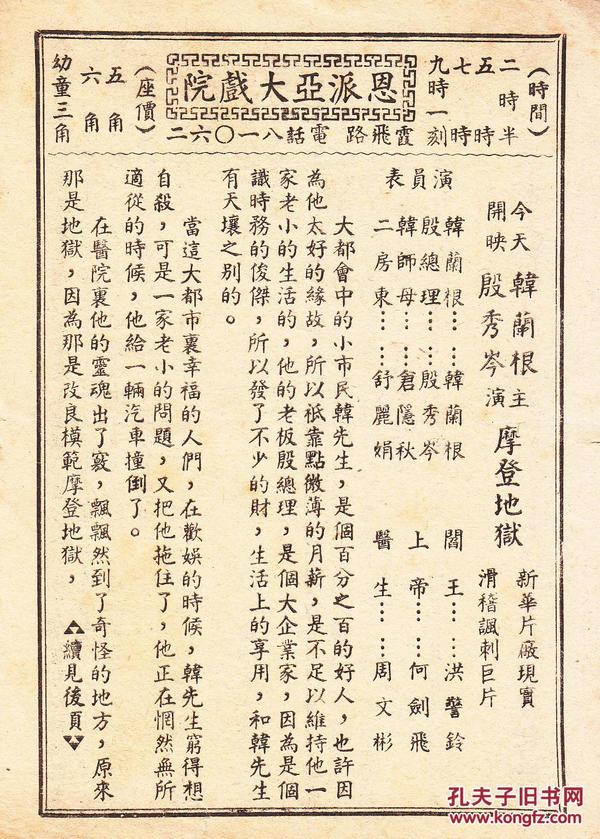 (時間)
二時半
五時
七時
九時一刻
恩派亞大戲院
霞飛路 電話八一〇六二
(座價)
五角
六角
幼童三角
今天開映
韓蘭根
殷秀岑
主演
摩登地獄
新華片廠現實
滑稽諷刺巨片
演員表
韓蘭根……韓蘭根
殷總理……殷秀岑
韓師母……倉隱秋
二房東……舒麗娟
閻王……洪警鈴
上帝……何劍飛
醫生……周文彬
大都會中的小市民韓先生，是個百分之百的好人，也許因
為他太好的緣故，所以祗靠點微薄的月薪，是不足以維持他一
家老小的生活的，他的老板殷總理，是個大企業家，因為是個
識時務的俊傑，所以發了不少的財，生活上的享用，和韓先生
有天壤之别的。
當這大都市裏幸福的人們，在歡娛的時候，韓先生窮得想
自殺，可是一家老小的問題，又把他拖住了，他正在惘然無所
適從的時候，他給一輛汽車撞倒了。
在醫院裏他的靈魂出了竅，飄飄然到了奇怪的地方，原來
那是地獄，因為那是改良模範摩登地獄，
續見後頁
孔夫子旧书网
www.kongfz.com